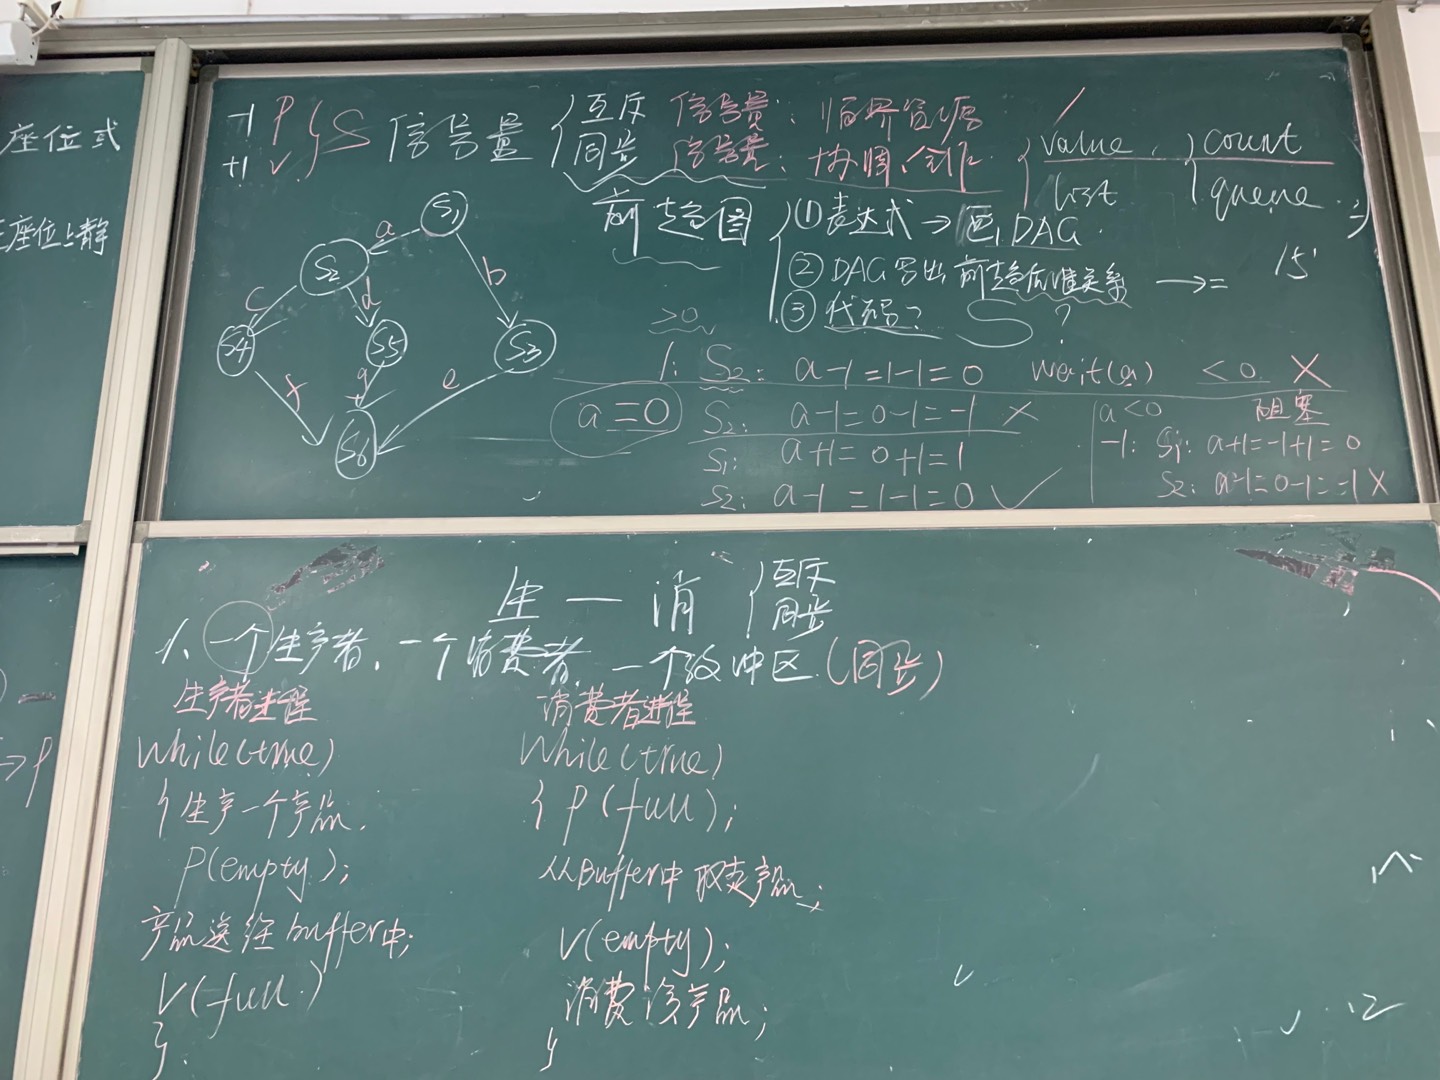 座位式
座位上静
-1 P } S 信号量 { 互斥 信号量: 临界资源
+1 V 同步 信号量: 协调、合作
{ value count
list queue
前趋图 { ① 表达式→画DAG
② DAG写出前趋后继关系 →= 15'
③ 代码? ?
S1
a
S2
b
c
d
S4
S5
S3
f
g
e
S6
≥0
1: S2: a-1=1-1=0 wait(a) <0 ×
a=0
S2: a-1=0-1=-1 ×
S1: a+1=0+1=1
S2: a-1=1-1=0 ✓
a<0 阻塞
-1: S1: a+1=-1+1=0
S2: a-1=0-1=-1 ×
生一消 { 互斥
同步
1、一个生产者、一个消费者、一个缓冲区(同步)
生产者进程
while(true)
{ 生产一个产品.
P(empty);
产品送往buffer中;
V(full)
}
消费者进程
While(true)
{ P(full);
从Buffer中取走产品;
V(empty);
消费该产品;
}